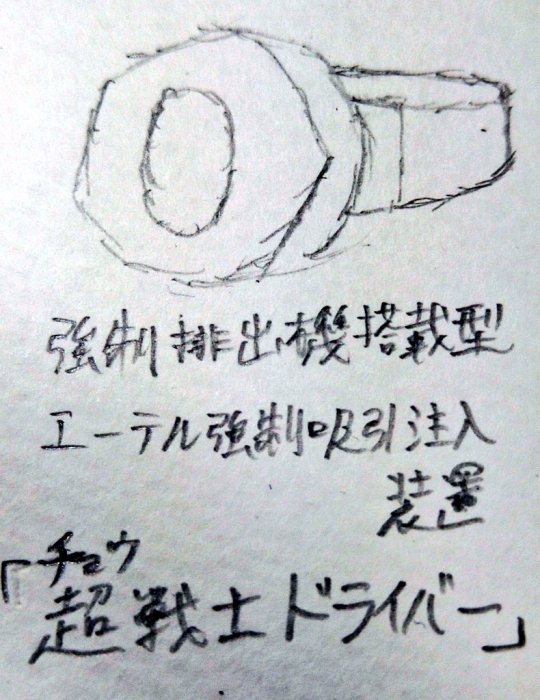 強制排出機搭載型
エーテル強制吸引注入
装置
チョウ
「超戦士ドライバー」